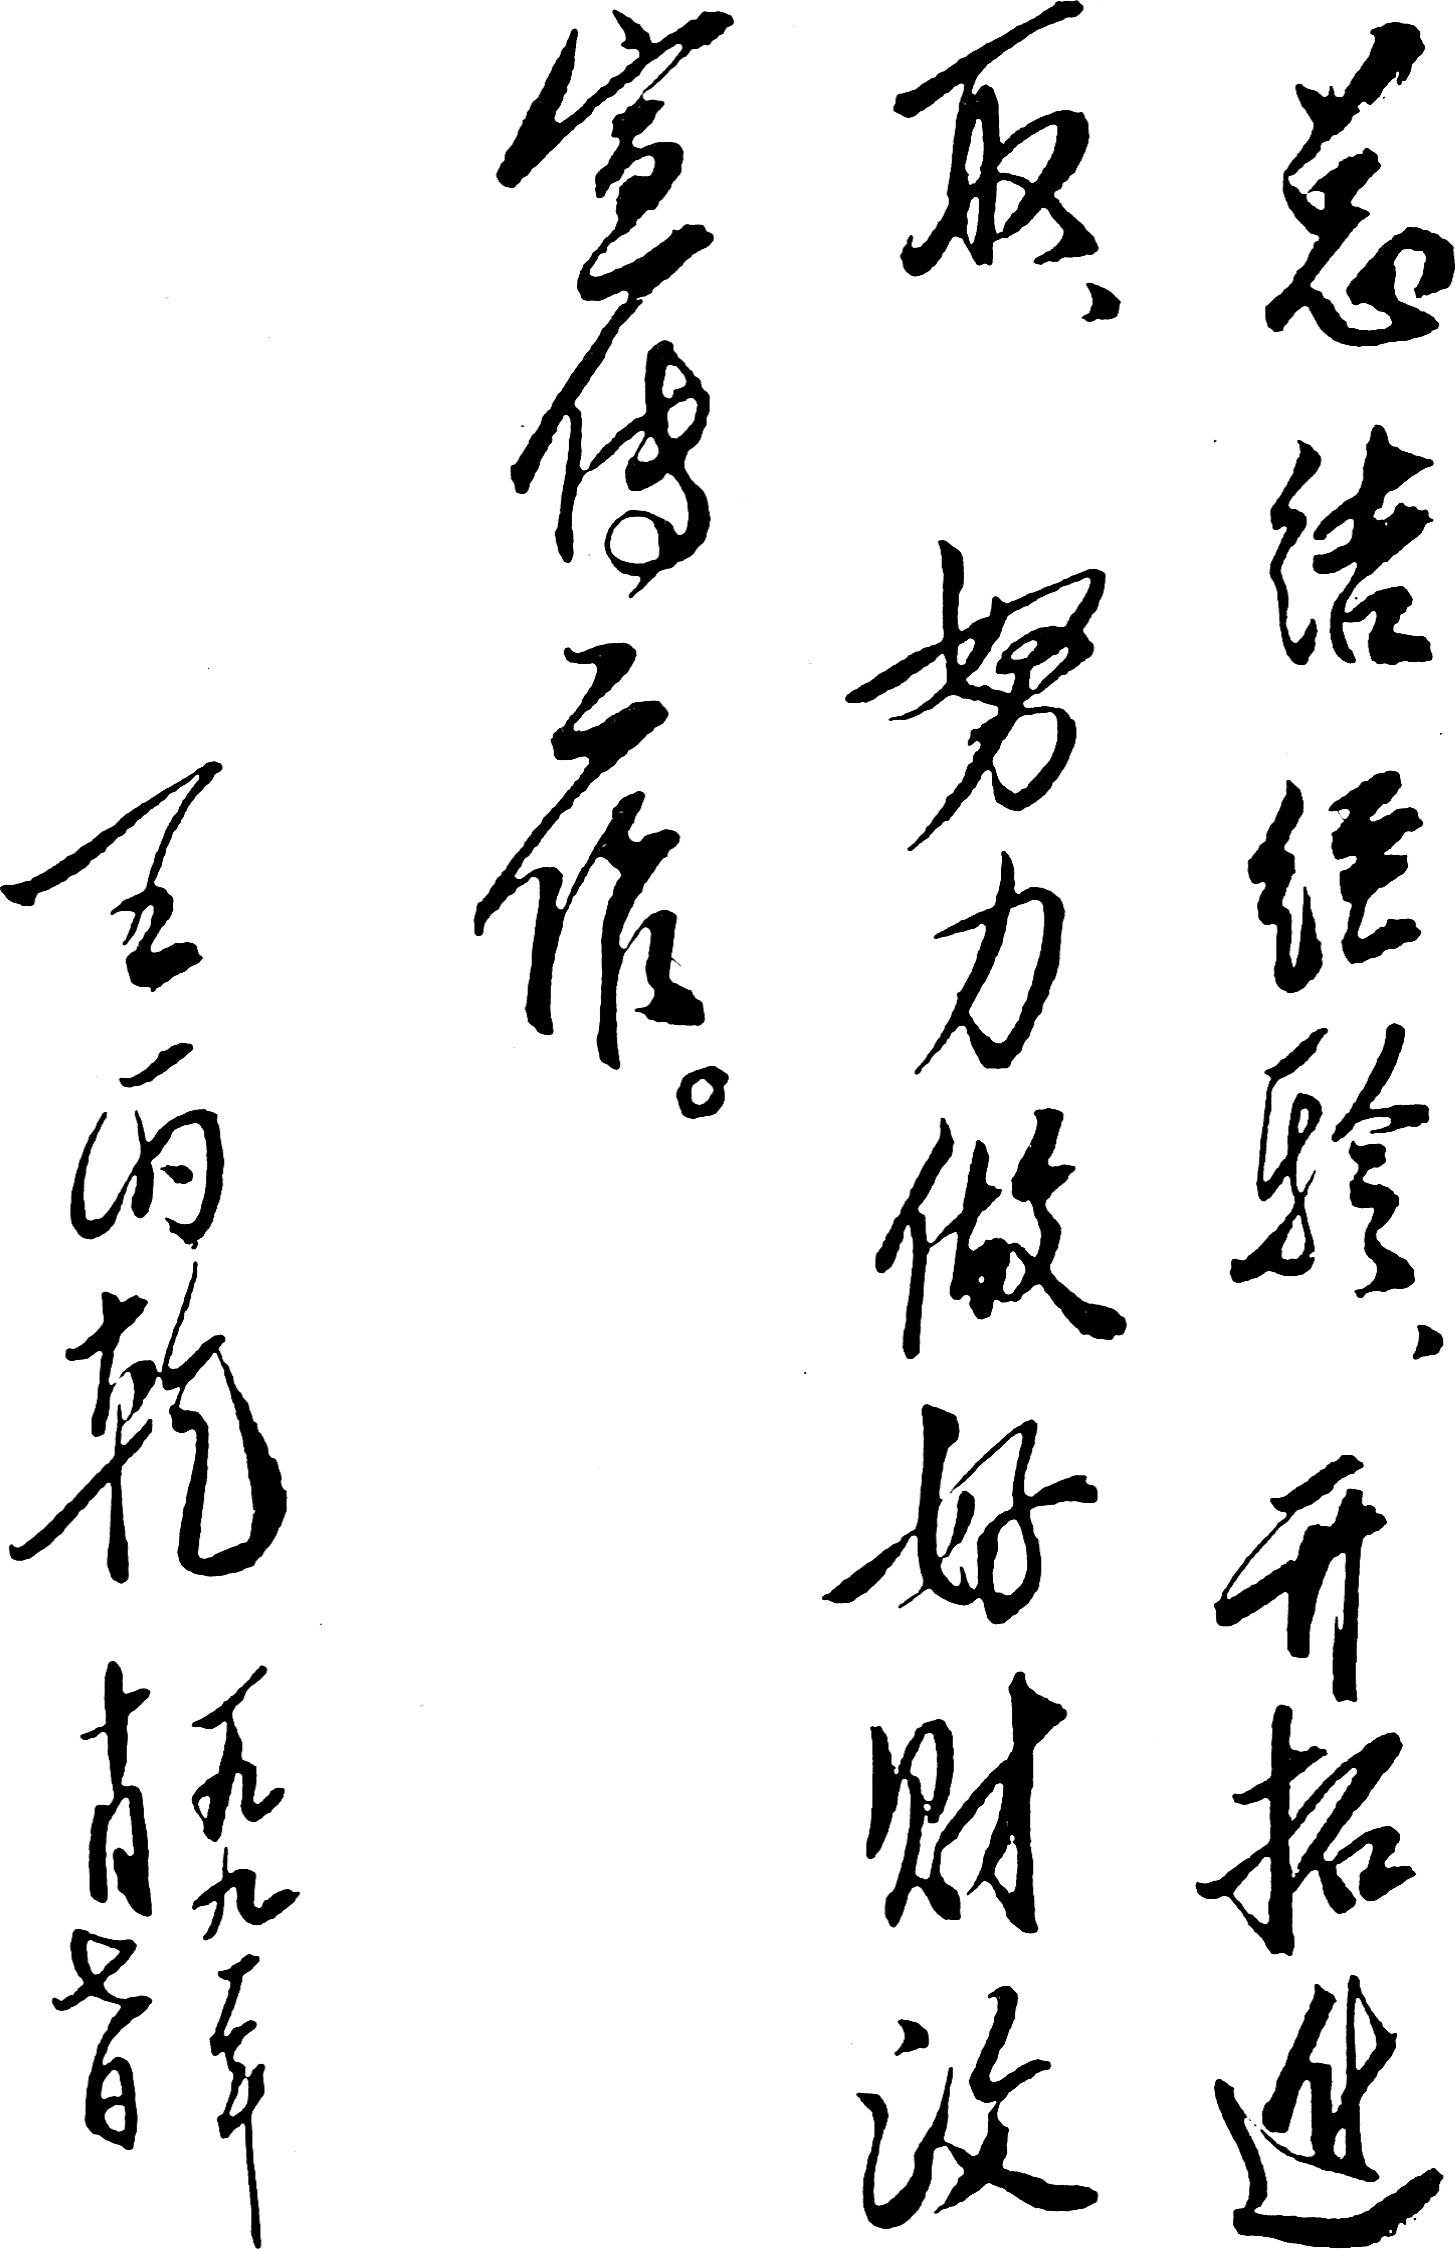 总结经验、开拓进
取、努力做好财政
宣传工作。
王丙乾
一九九一年